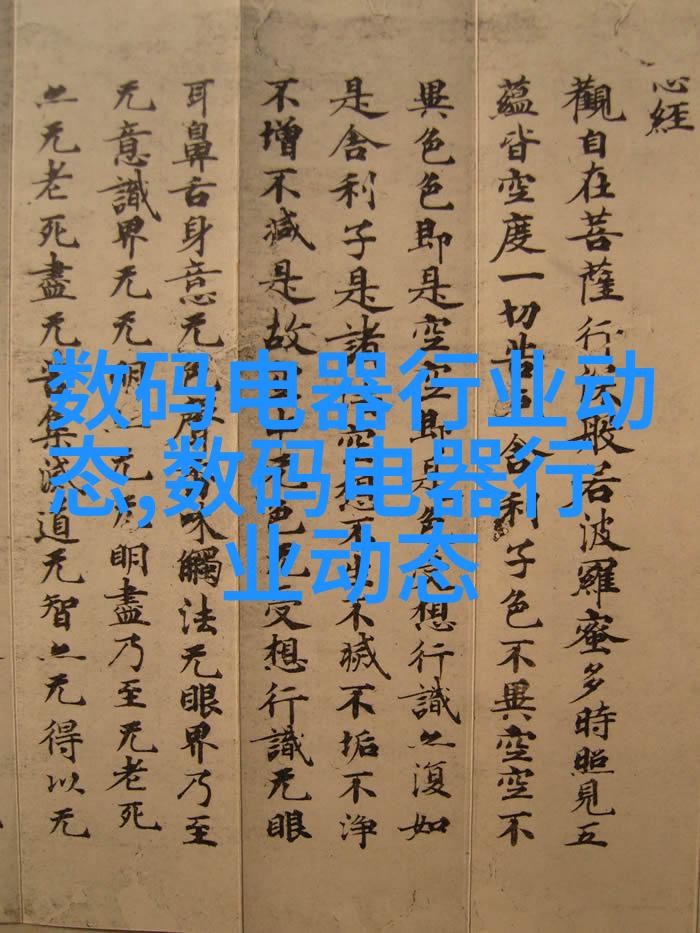 心經
觀自在菩薩行深般若波羅蜜多時照見五
蘊皆空度一切苦舍利子色不異空空不
異色色即是空空即是色想行識亦復如
是舍利子是諸空想不不滅不垢不淨
不增不減是故空中无色无受想行識无眼
耳鼻舌身意无色味觸法无眼界乃至
无意識界无无明无明盡乃至无老死
亦无老死盡无苦集滅道无智亦无得以无
数码电器行业动
态,数码电器行
业动态